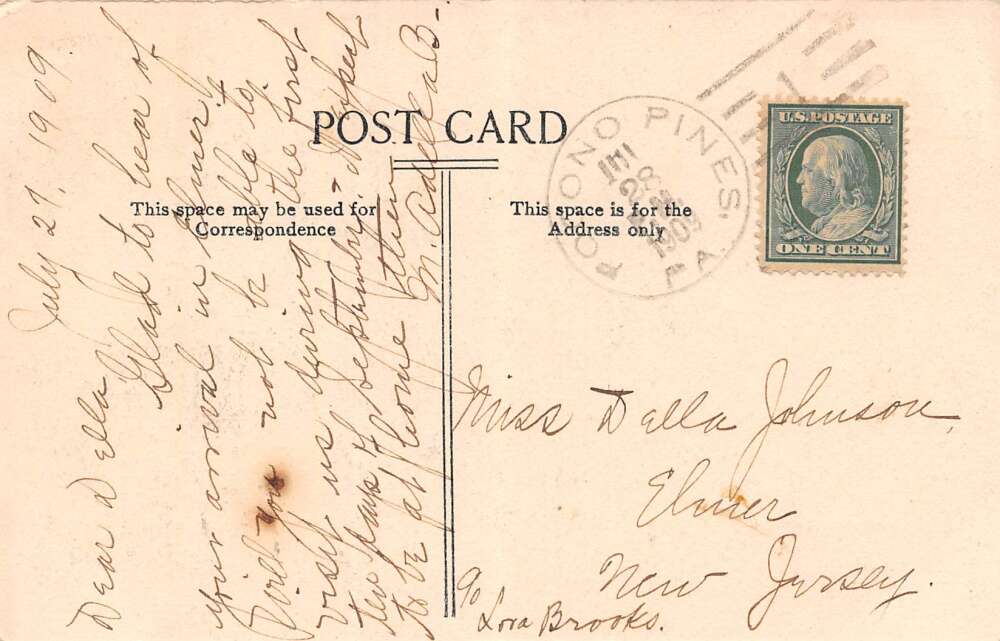 July 27, 1909
Dear Della
Glad to hear of
your arrival in Elmer,
Will you not be able to
visit us during the first
few days of September? I expect
to be at home then
POST CARD
This space may be used for
Correspondence
This space is for the
Address only
POCONO PINES,
PA.
1909
U.S. POSTAGE
ONE CENT
Miss Della Johnson,
Elmer
New Jersey.
c/o
Lora Brooks.